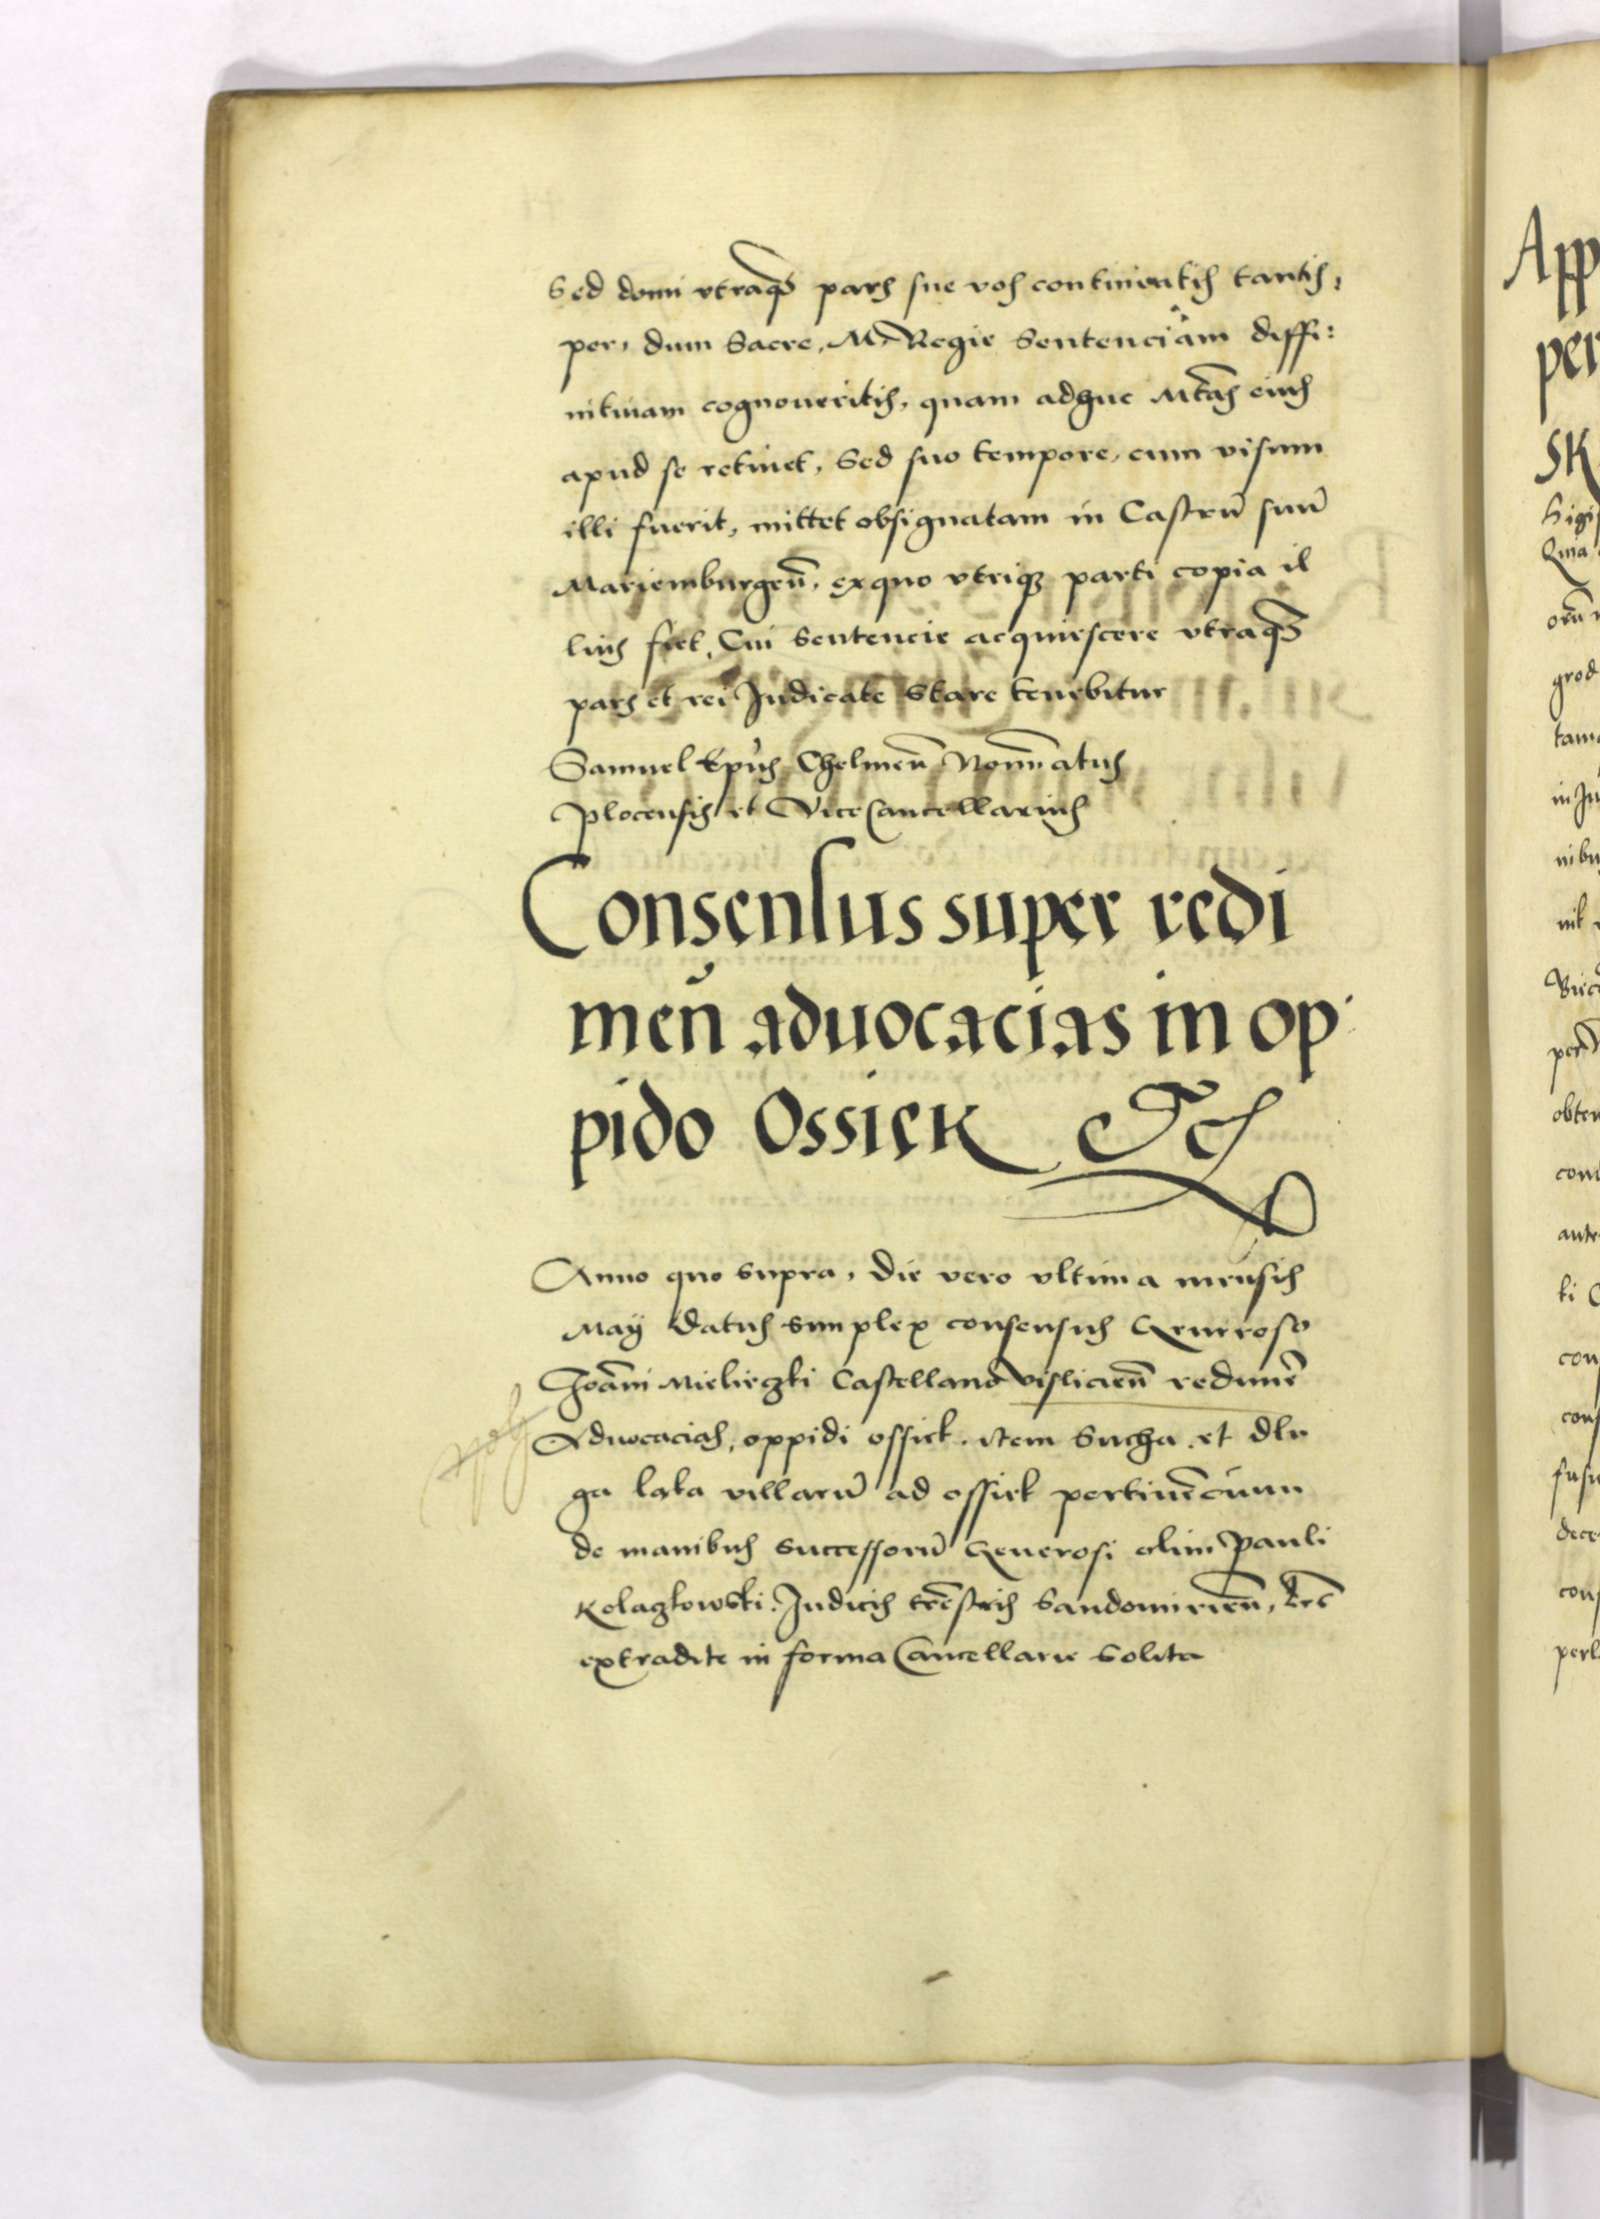 Sed domi vtraq̃ pars sue vos contineatis tantis:
per, dum Sacre, M. Regie Sentenciam diffi:
nitiuam cognoueritis, quam adhuc Mtãs eius
apud se retinet, Sed suo tempore, cum visum
illi fuerit, mittet obsignatam in Castrũ suũ
Mariemburgeñ, ex quo vtriq3 parti copia il
lius fiet, Cui Sentencie acquiescere vtraq̃
pars et rei Judicate Stare tenebitur
Samuel Ep̃us Chelmeñ Nomĩatus
Plocensis et Vicecancellarius
Consensus super redi
meñ aduocacias in op
pido Ossiek Etc
Anno quo supra, die vero vltima mensis
May datus simplex consensus Generoso
Joãni Mieliczki Castellano Visliciẽn redimẽ
Aduocacias, oppidi ossiek. Item Sucha. et dlu
ga laka villarũ ad ossiek pertinẽcium
de manibus successorũ Generosi olim Pauli
Kolaczkowski. Judicis trẽstris Sandomirieñ, Lrẽ
extradite in forma Cancellarie Solita
App
per
SK